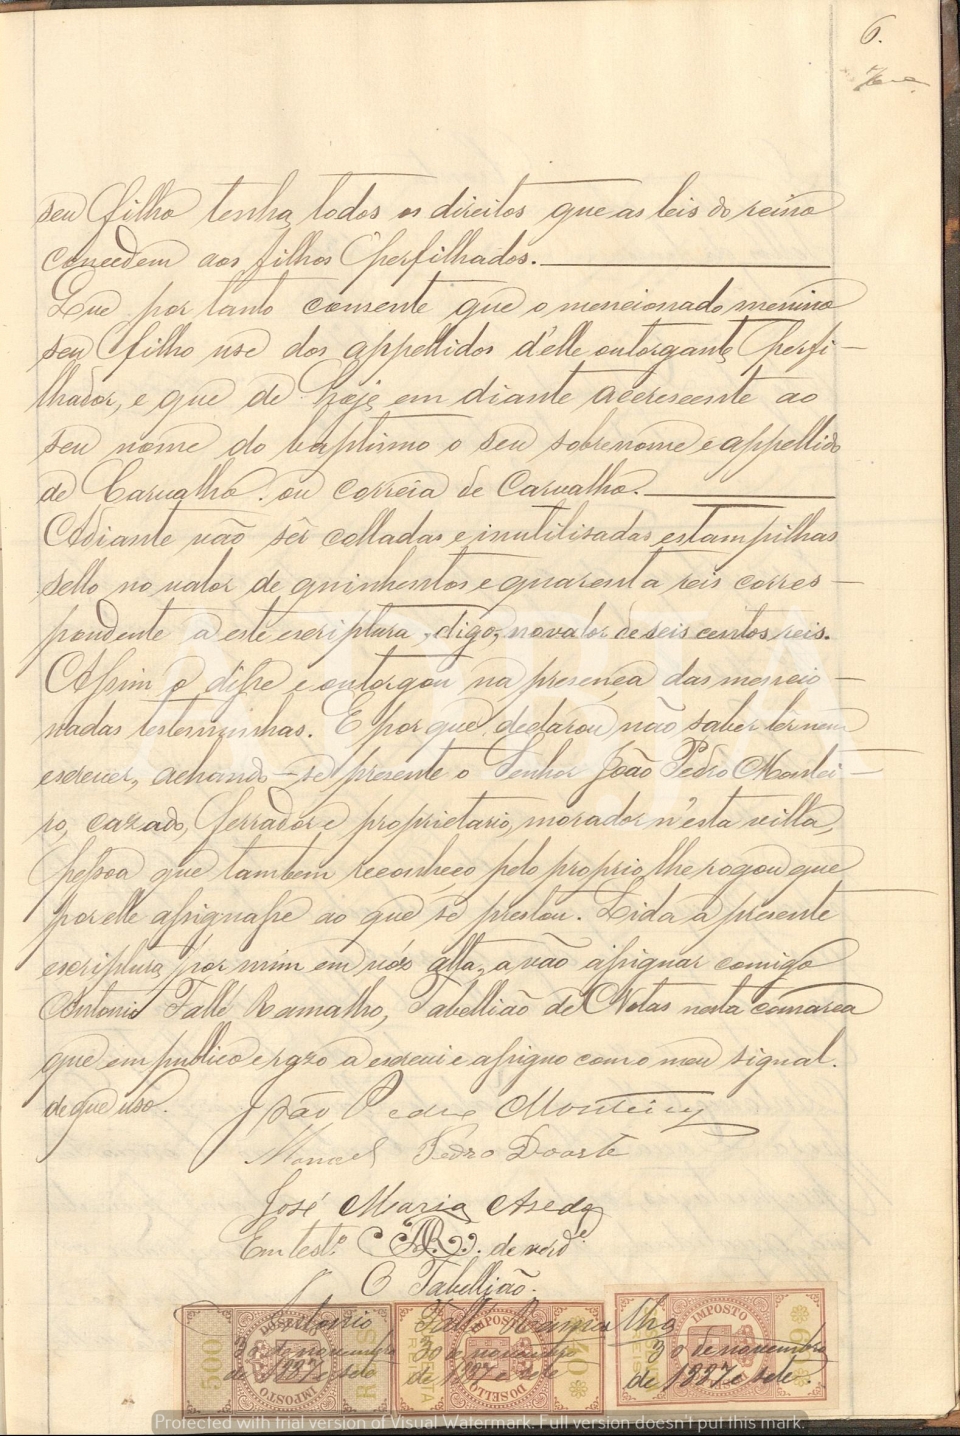 6.
seu filho tenha todos os direitos que as leis do reino
concedem aos filhos perfilhados.
Que por tanto consente que o mencionado menino
seu filho use dos appellidos d'elle outorgante perfi-
lhador, e que de hoje em diante accrescente ao
seu nome do baptismo o seu sobrenome e appellido
de Carvalho. ou Correia de Carvalho.
Adiante vão sêr colladas e inutilisadas estampilhas
sello no valor de quinhentos e quarenta reis corres-
pondente a este escriptura, digo, no valor de seis centos reis.
Assim o disse e outorgou na presença das mencio-
nadas testemunhas. E por que declarou não saber lêr nem
escrever, achando-se presente o Senhor João Pedro Montei-
ro, cazado, ferrador e proprietario, morador n'esta villa,
pessoa que tambem reconheço pelo proprio, lhe rogou que
por elle assignasse ao que se prestou. Lida a presente
escriptura por mim em vóz alta, a vão assignar comigo
Antonio Fallé Ramalho, Tabellião de Notas nesta comarca
que em publico e razo a escrevi e assigno com o meu signal.
de que uso.
João Pedro Monteiro
Manoel Pedro Duarte
José Maria Aseda
Em test.º AR de verd.e
O Tabellião.
Antonio Fallé Ramalho
500 IMPOSTO DO SELLO REIS
IMPOSTO DO SELLO 40
IMPOSTO 60
30 de novembro
de 1887 e sete
30 de novembro
de 1887 e sete
30 de novembro
de 1887 e sete.
Protected with trial version of Visual Watermark. Full version doesn't put this mark.